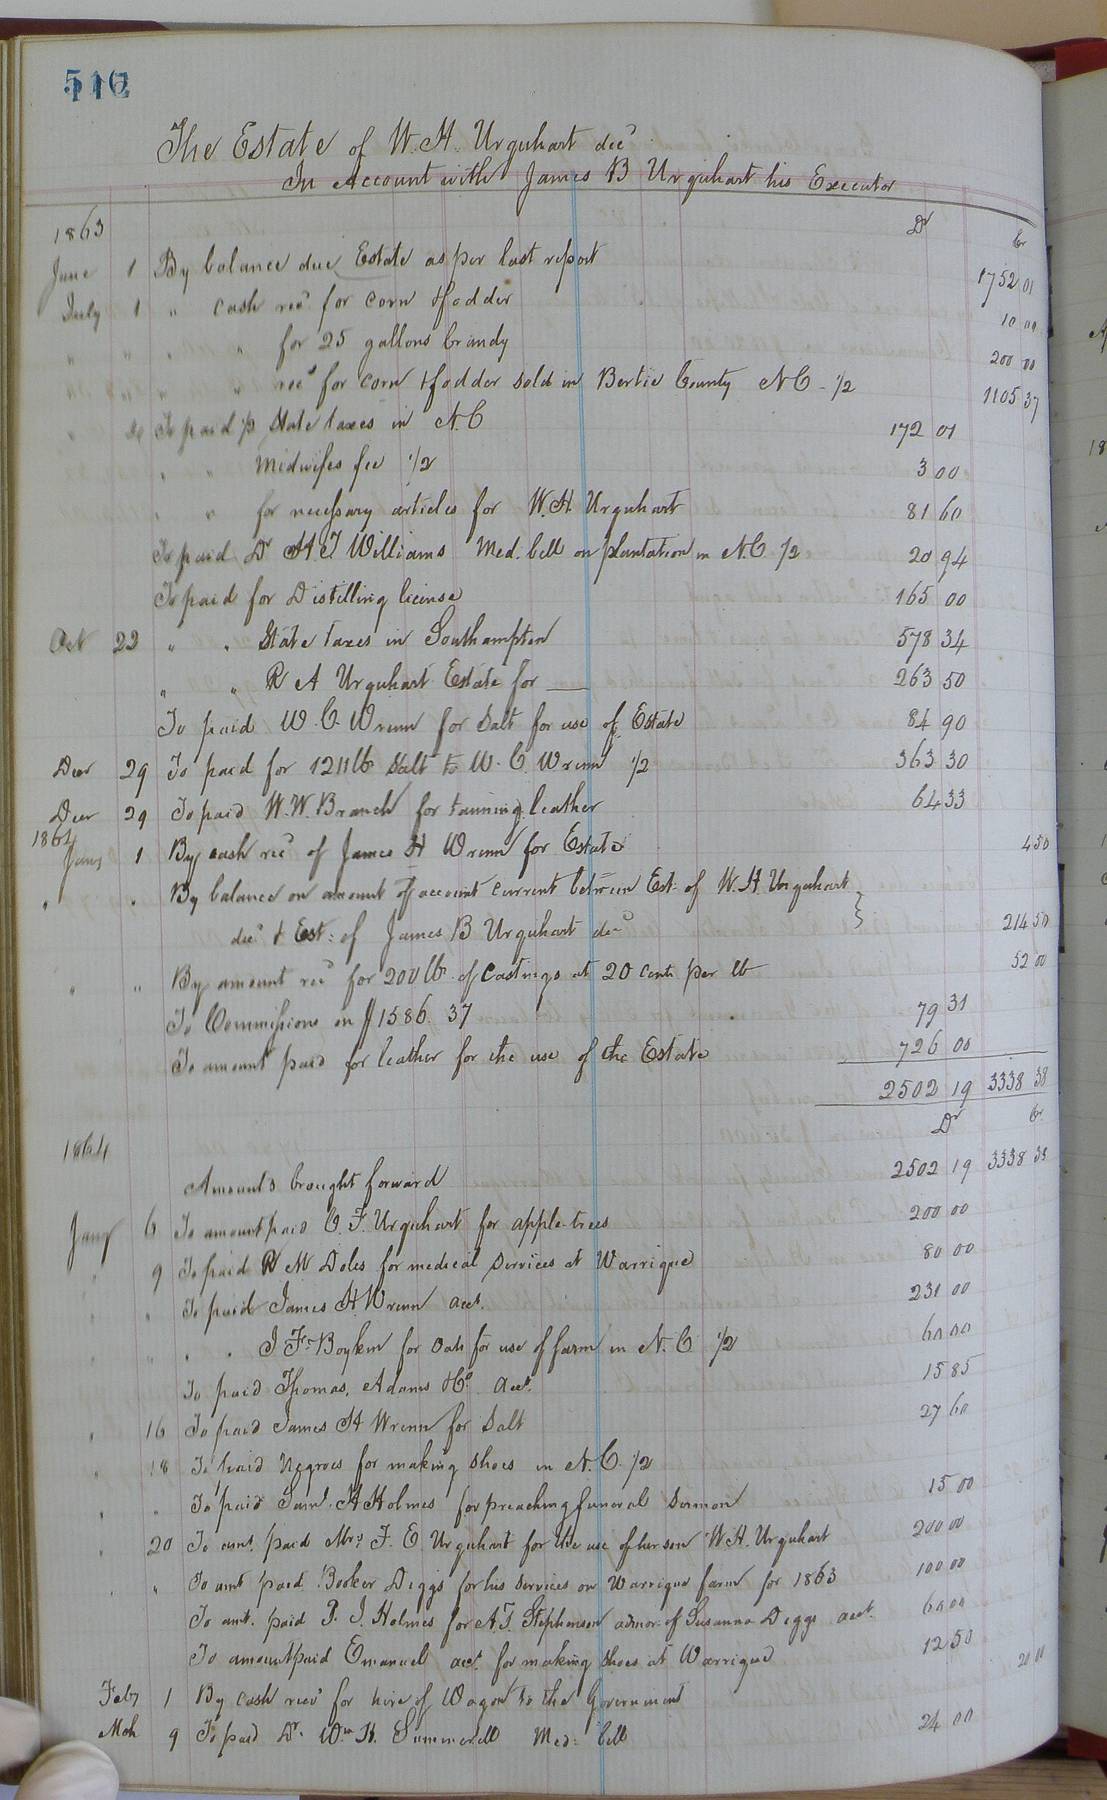 The Estate of W. H. Urquhart decd
In Account with James B Urquhart his Executor
1863 Dr Cr
June 1 By balance due Estate as per last report 1752 01
July 1 " cash recd for corn & fodder 10 00
" " " " for 25 gallons brandy 200 00
" " " " recd for corn & fodder sold in Bertie County N C - 1/2 1105 37
To paid State taxes in N. C 172 01
" " Midwifes fee 1/2 3 00
" " for necessary articles for W. H. Urquhart 81 60
To paid Dr H. T Williams Med. bill on plantation in N. C 1/2 20 94
To paid for Distilling license 165 00
Oct 22 " " State taxes in Southampton 578 34
" " R A Urquhart Estate for — 263 50
To paid W. C. Wrenn for Salt for use of Estate 84 90
Decr 29 To paid for 1211 lb Salt to W. C. Wrenn 1/2 363 30
Decr 29 To paid W. W. Branch for tanning leather 64 33
1864
Jany 1 By cash recd of James H Wrenn for Estate 4 50
" " By balance on amount of account current between Est: of W. H Urquhart
decd & Est: of James B Urquhart decd 214 50
" " By amount recd for 200 lb of Castings at 20 cents per lb 52 00
To Commissions on $1586. 37 79 31
To amount paid for leather for the use of the Estate 726 00
2502 19 3338 38
1864 Dr Cr
Amounts brought forward 2502 19 3338 38
Jany 6 To amount paid C. F. Urquhart for apple-trees 200 00
" 9 To paid R M Doles for medical services at Warrique 80 00
" " To paid James H Wrenn acct. 231 00
" " " " J F. Boykin for Oats for use of farm in N. C 1/2 60 00
To paid Thomas, Adams & Co acct. 15 85
" 16 To paid James H Wrenn for Salt 27 60
" 18 To paid Negroes for making shoes in N. C. 1/2
" " To paid Saml. H Holmes for preaching funeral Sermon 15 00
" 20 To amt. paid Mrs. F. E Urquhart for the use of her son W H. Urquhart 200 00
" " To amt paid Booker Diggs for his services on Warrique farm for 1863 100 00
To amt. paid P. J. Holmes for A. J. Stephenson admor. of Susanna Diggs acct. 60 00
To amount paid Emanuel acct. for making shoes at Warrique 12 50
Feby 1 By cash recd for hire of Wagon to the Government 20 00
Mch 9 To paid Dr. Wm H. Summerell Med: bill 24 00